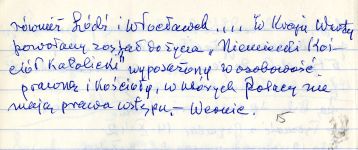 również Łódź i Włocławek.... W Kraju Warty
powołany został do życia „Niemiecki Koś-
ciół Katolicki" wyposażony w osobowość
prawną i Kościoły, w których Polacy nie
mają prawa wstępu. – Wernic.
15